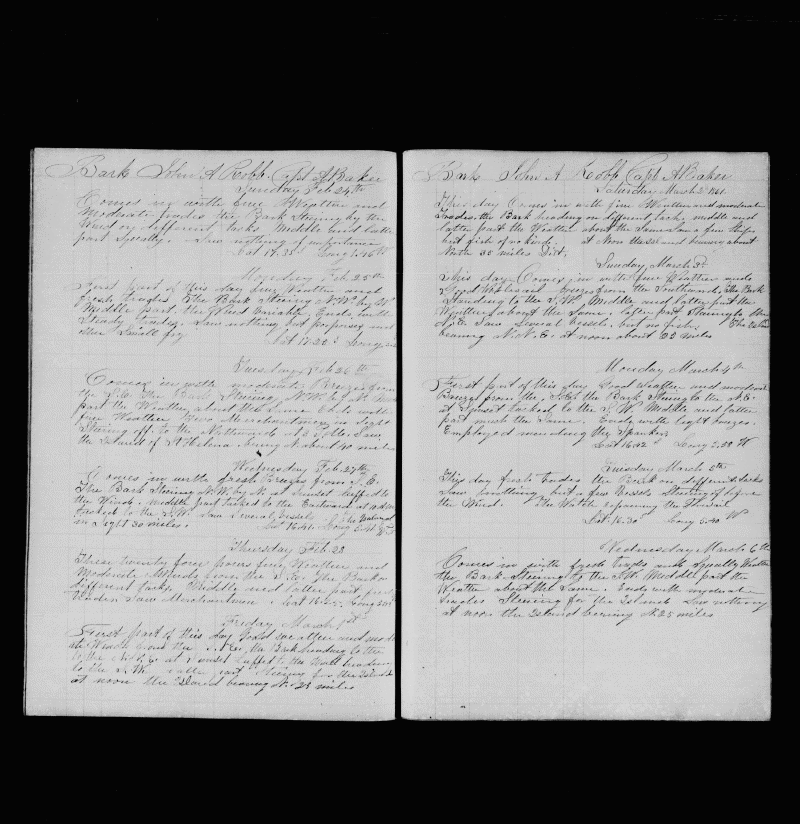 Bark John A Robb. Capt A Baker
Sunday Feb 24th
Comes in with fine Weather and
Moderate trades the Bark Steering by the
Wind on different tacks Middle and latter
part Squally. Saw nothing of importance
Lat 17.35 Long 1.46 W
Monday Feb 25th
First part of this day fine Weather and
fresh trades The Bark Steering N.W. by W.
Middle part the Wind variable Ends with
Steady trades. Saw nothing but porpoises and
one Small
Lat 17.22 Long
Tuesday Feb 26th
Comes in with moderate Breezes from
the S.E. the Bark Steering N.W. by N.
part the Weather about the Same Ends with
fine Weather two Merchantmen in Sight
Steering off to the Northward at Saw
the Island of St Helena bearing N about 40 miles
Wednesday Feb 27th
Comes in with fresh Breezes from S.E.
The Bark Steering N.W. by N. at Sunset luffed to
the Wind. Middle part tacked to the Eastward at 10 AM
tacked to the S.W. Saw Several Vessels
in Sight 30 miles. Lat 16.41 Long 5.41
Thursday Feb 28
These twenty four hours fine Weather and
Moderate Winds from the S.E. The Bark on
different tacks Middle and latter part
Saw Merchantmen. Lat 16 Long
Friday March 1st
First part of this day Good weather and mode
ate Winds from the S.E. the Bark heading to the
to the N.E. at Sunset luffed to the Wind heading
to the S.W. latter part Steering for the Island
at noon the Island bearing N. 28 miles
Bark John A Robb Capt A Baker
Saturday March 2d 1861
This day Comes in with fine Weather and moderate
trades the Bark heading on different tacks, middle and
latter part the Weather about the Same Saw a few Ships
but fish of no kind. at Noon the Island bearing about
North 35 miles Dist.
Sunday March 3d
This day Comes in with fine Weather and
Good Wholesail breezes from the Southward, The Bark
Standing to the S.W. Middle and latter part the
Weather about the Same. latter part Steering to the
N.E. Saw Several Vessels. but no fish. The Island
bearing N.N.E. at noon about 22 miles
Monday March 4th
First part of this day Good Weather and moderate
Breezes from the S.E. the Bark Steering to the N.E.
at Sunset tacked to the S.W. Middle and latter
part much the Same. Ends with light breezes.
Employed mending the Spanker.
Lat 16.42 S Long 5.58 W
Tuesday March 5th
This day fresh trades the Bark on different tacks
Saw nothing but a few Vessels Steering off before
the Wind. The Watch repairing the
Lat. 16.30 Long 5.40 W
Wednesday March 6th
Comes in with fresh trades and Squally Weather
the Bark Steering to the S.W. Middle part the
Weather about the Same. Ends with moderate
trades Steering for the Island Saw nothing
at noon the Island bearing N 25 miles